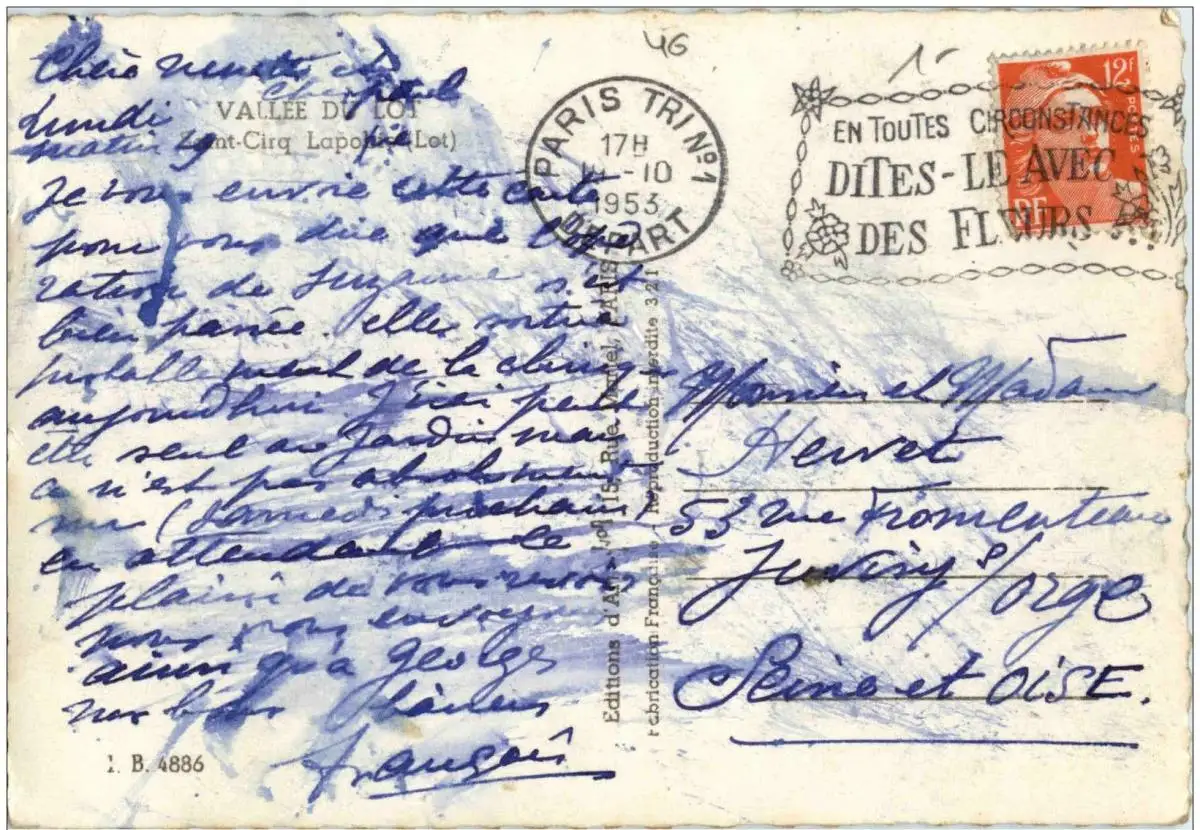 46
1-
Chère Nenette et
Lundi
matin 9
VALLÉE DU LOT
Saint-Cirq Lapopie (Lot)
Je vous envoie cette carte
pour vous dire que l'opé
ration de Suzanne s'est
bien passée. elle
de la clinique
aujourd'hui J'irai peut
etre seul au jardin mais
ce n'est pas absolument
sur (samedi prochain)
en attendant le
plaisir de vous revoir
nous vous envoyons
ainsi qu'a Georges
nos bons baisers
François
1. B. 4886
PARIS TRI N°1
17H
-10
1953
DEPART
EN TOUTES CIRCONSTANCES
DITES-LE AVEC
DES FLEURS
12F
POSTES
RF
Editions d'Art Rue PARIS
Fabrication Française Reproduction interdite 321
Monsieur et Madame
Hervet
53 rue Fromenteau
Juvisy s/orge
Seine et OISE.